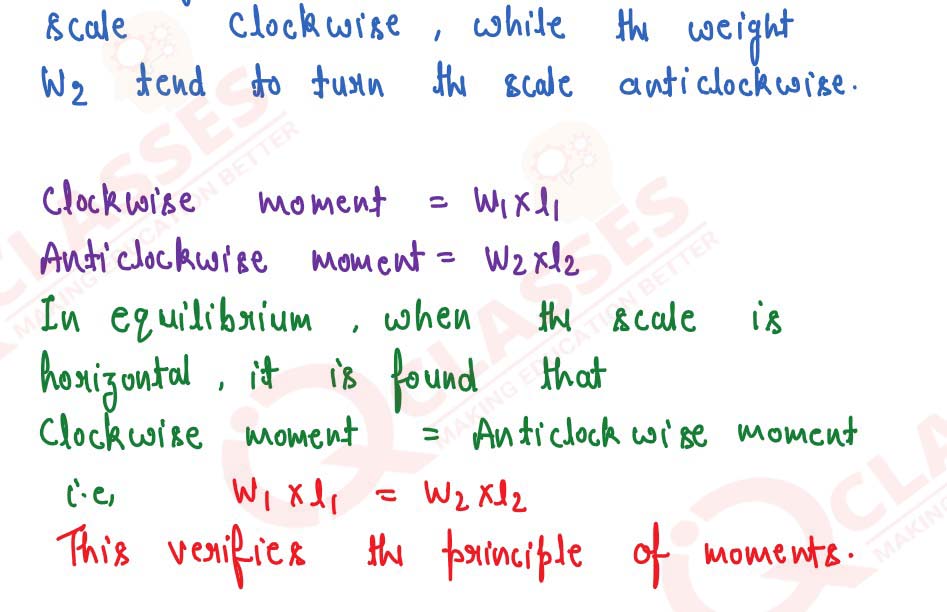 scale clockwise, while the weight
W2 tend to turn the scale anticlockwise.
Clockwise moment = W1 x l1
Anticlockwise moment = W2 x l2
In equilibrium, when the scale is
horizontal, it is found that
Clockwise moment = Anticlockwise moment
i.e, W1 x l1 = W2 x l2
This verifies the principle of moments.
CLASSES
MAKING EDUCATION BETTER
CLASSES
MAKING EDUCATION BETTER
CLA
MAKING